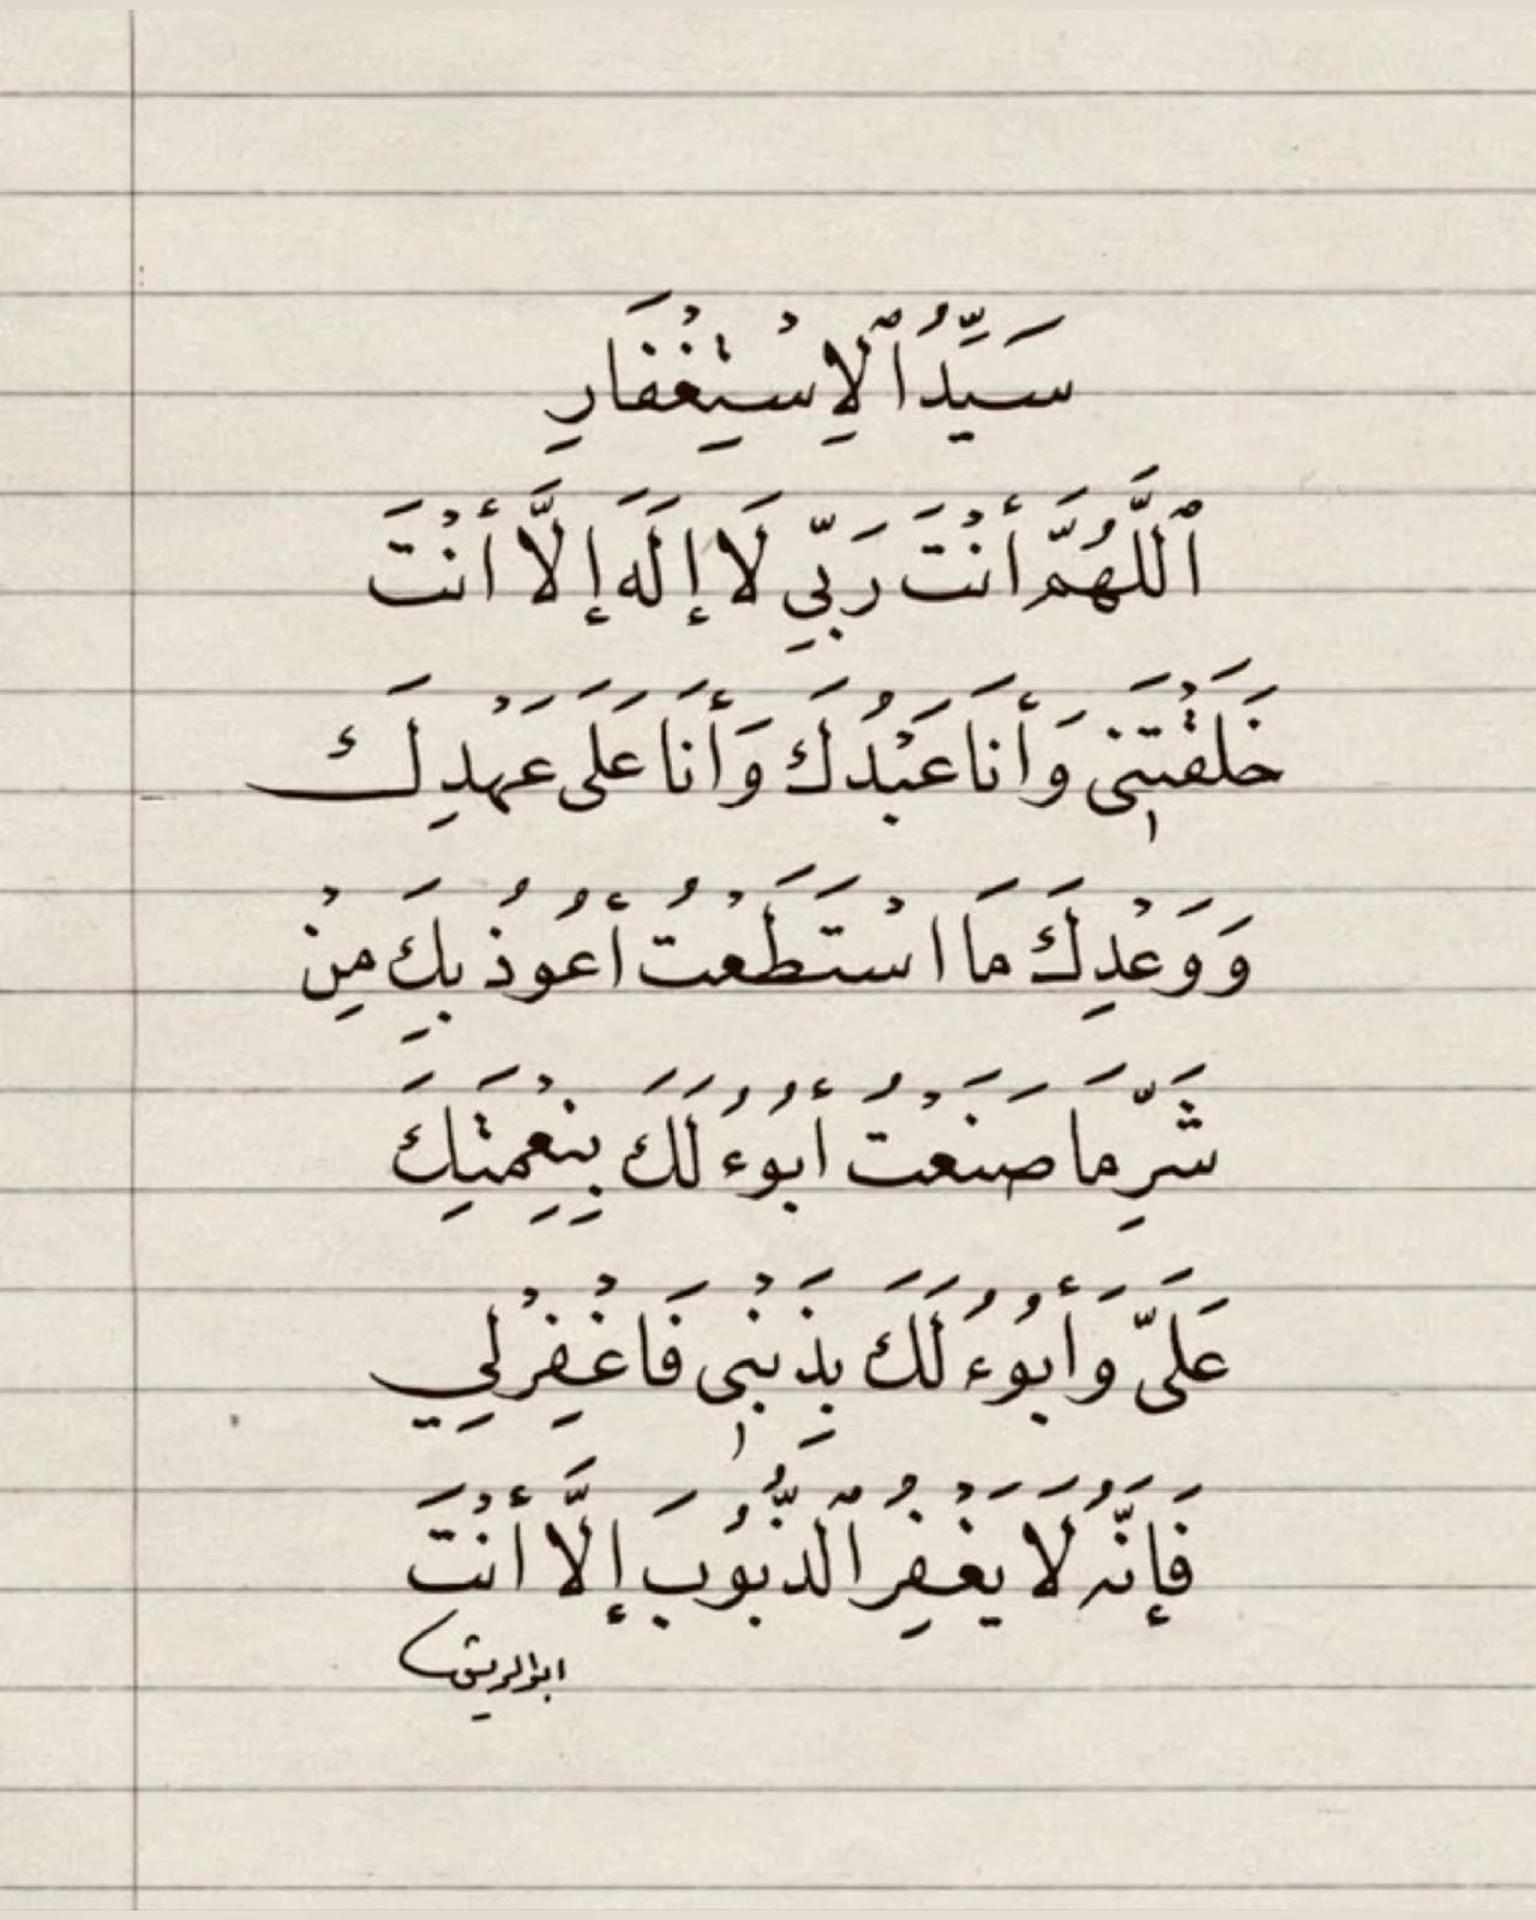 سَيِّدُ ٱلِاسْتِغْفَارِ
ٱللَّهُمَّ أَنْتَ رَبِّي لَا إِلَهَ إِلَّا أَنْتَ
خَلَقْتَنِي وَأَنَا عَبْدُكَ وَأَنَا عَلَى عَهْدِكَ
وَوَعْدِكَ مَا اسْتَطَعْتُ أَعُوذُ بِكَ مِنْ
شَرِّ مَا صَنَعْتُ أَبُوءُ لَكَ بِنِعْمَتِكَ
عَلَيَّ وَأَبُوءُ لَكَ بِذَنْبِي فَاغْفِرْ لِي
فَإِنَّهُ لَا يَغْفِرُ ٱلذُّنُوبَ إِلَّا أَنْتَ